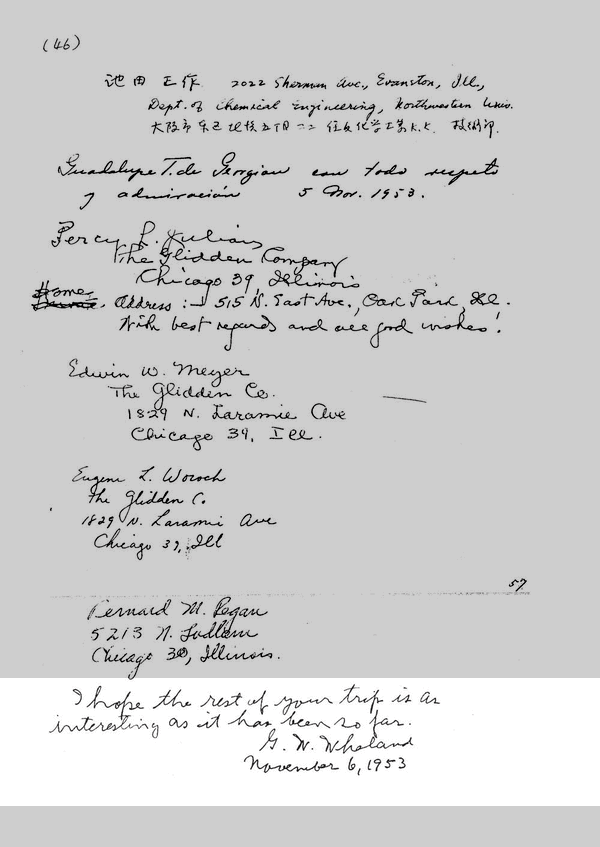 (46)
池田正作 2022 Sherman Ave., Evanston, Ill.,
Dept. of Chemical Engineering, Northwestern Univ.
大阪市 住友化学工業K.K. 技術部
Guadalupe T. de Georgian con todo respeto
y admiración 5 Nov. 1953.
Percy L. Julian
The Glidden Company
Chicago 39, Illinois
Home
Address :- 515 N. East Ave., Oak Park, Ill.
With best regards and all good wishes!
Edwin W. Meyer
The Glidden Co.
1829 N. Laramie Ave
Chicago 39, Ill.
Eugene L. Woroch
The Glidden C.
1829 N. Laramie Ave
Chicago 39, Ill
57
Bernard M. Regan
5213 N. Ludlam
Chicago 30, Illinois.
I hope the rest of your trip is as
interesting as it has been so far.
G. W. Wheland
November 6, 1953